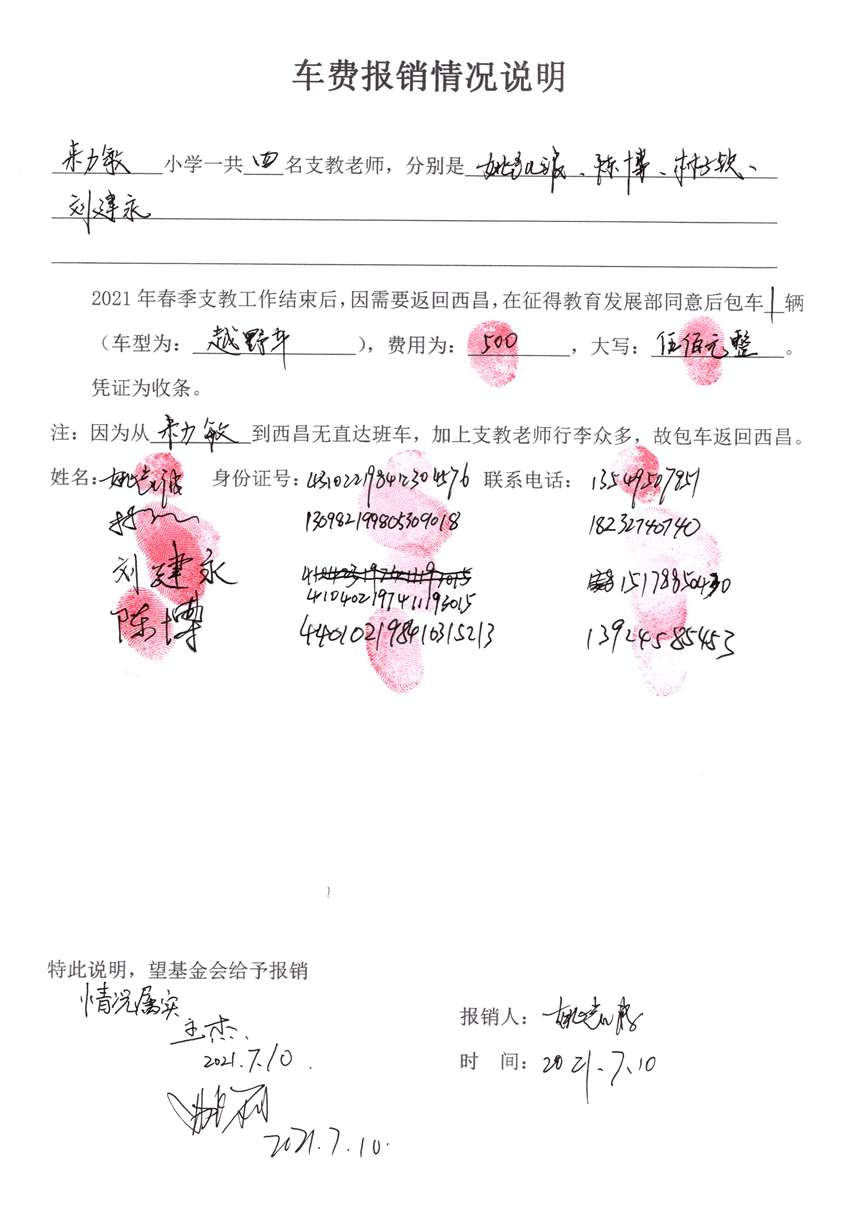 车费报销情况说明
来力敏 小学一共 四 名支教老师，分别是 陈博、
刘建永
2021年春季支教工作结束后，因需要返回西昌，在征得教育发展部同意后包车 1 辆
（车型为： 越野车 ），费用为： 500 ，大写： 伍佰元整 。
凭证为收条。
注：因为从 来力敏 到西昌无直达班车，加上支教老师行李众多，故包车返回西昌。
姓名： 身份证号： 联系电话：
130982199805309018 18232740740
刘建永
410402197411193015
陈博 440102198410315213 13924585453
特此说明，望基金会给予报销
情况属实
王杰
2021.7.10
报销人：
时 间：2021.7.10
2021.7.10.